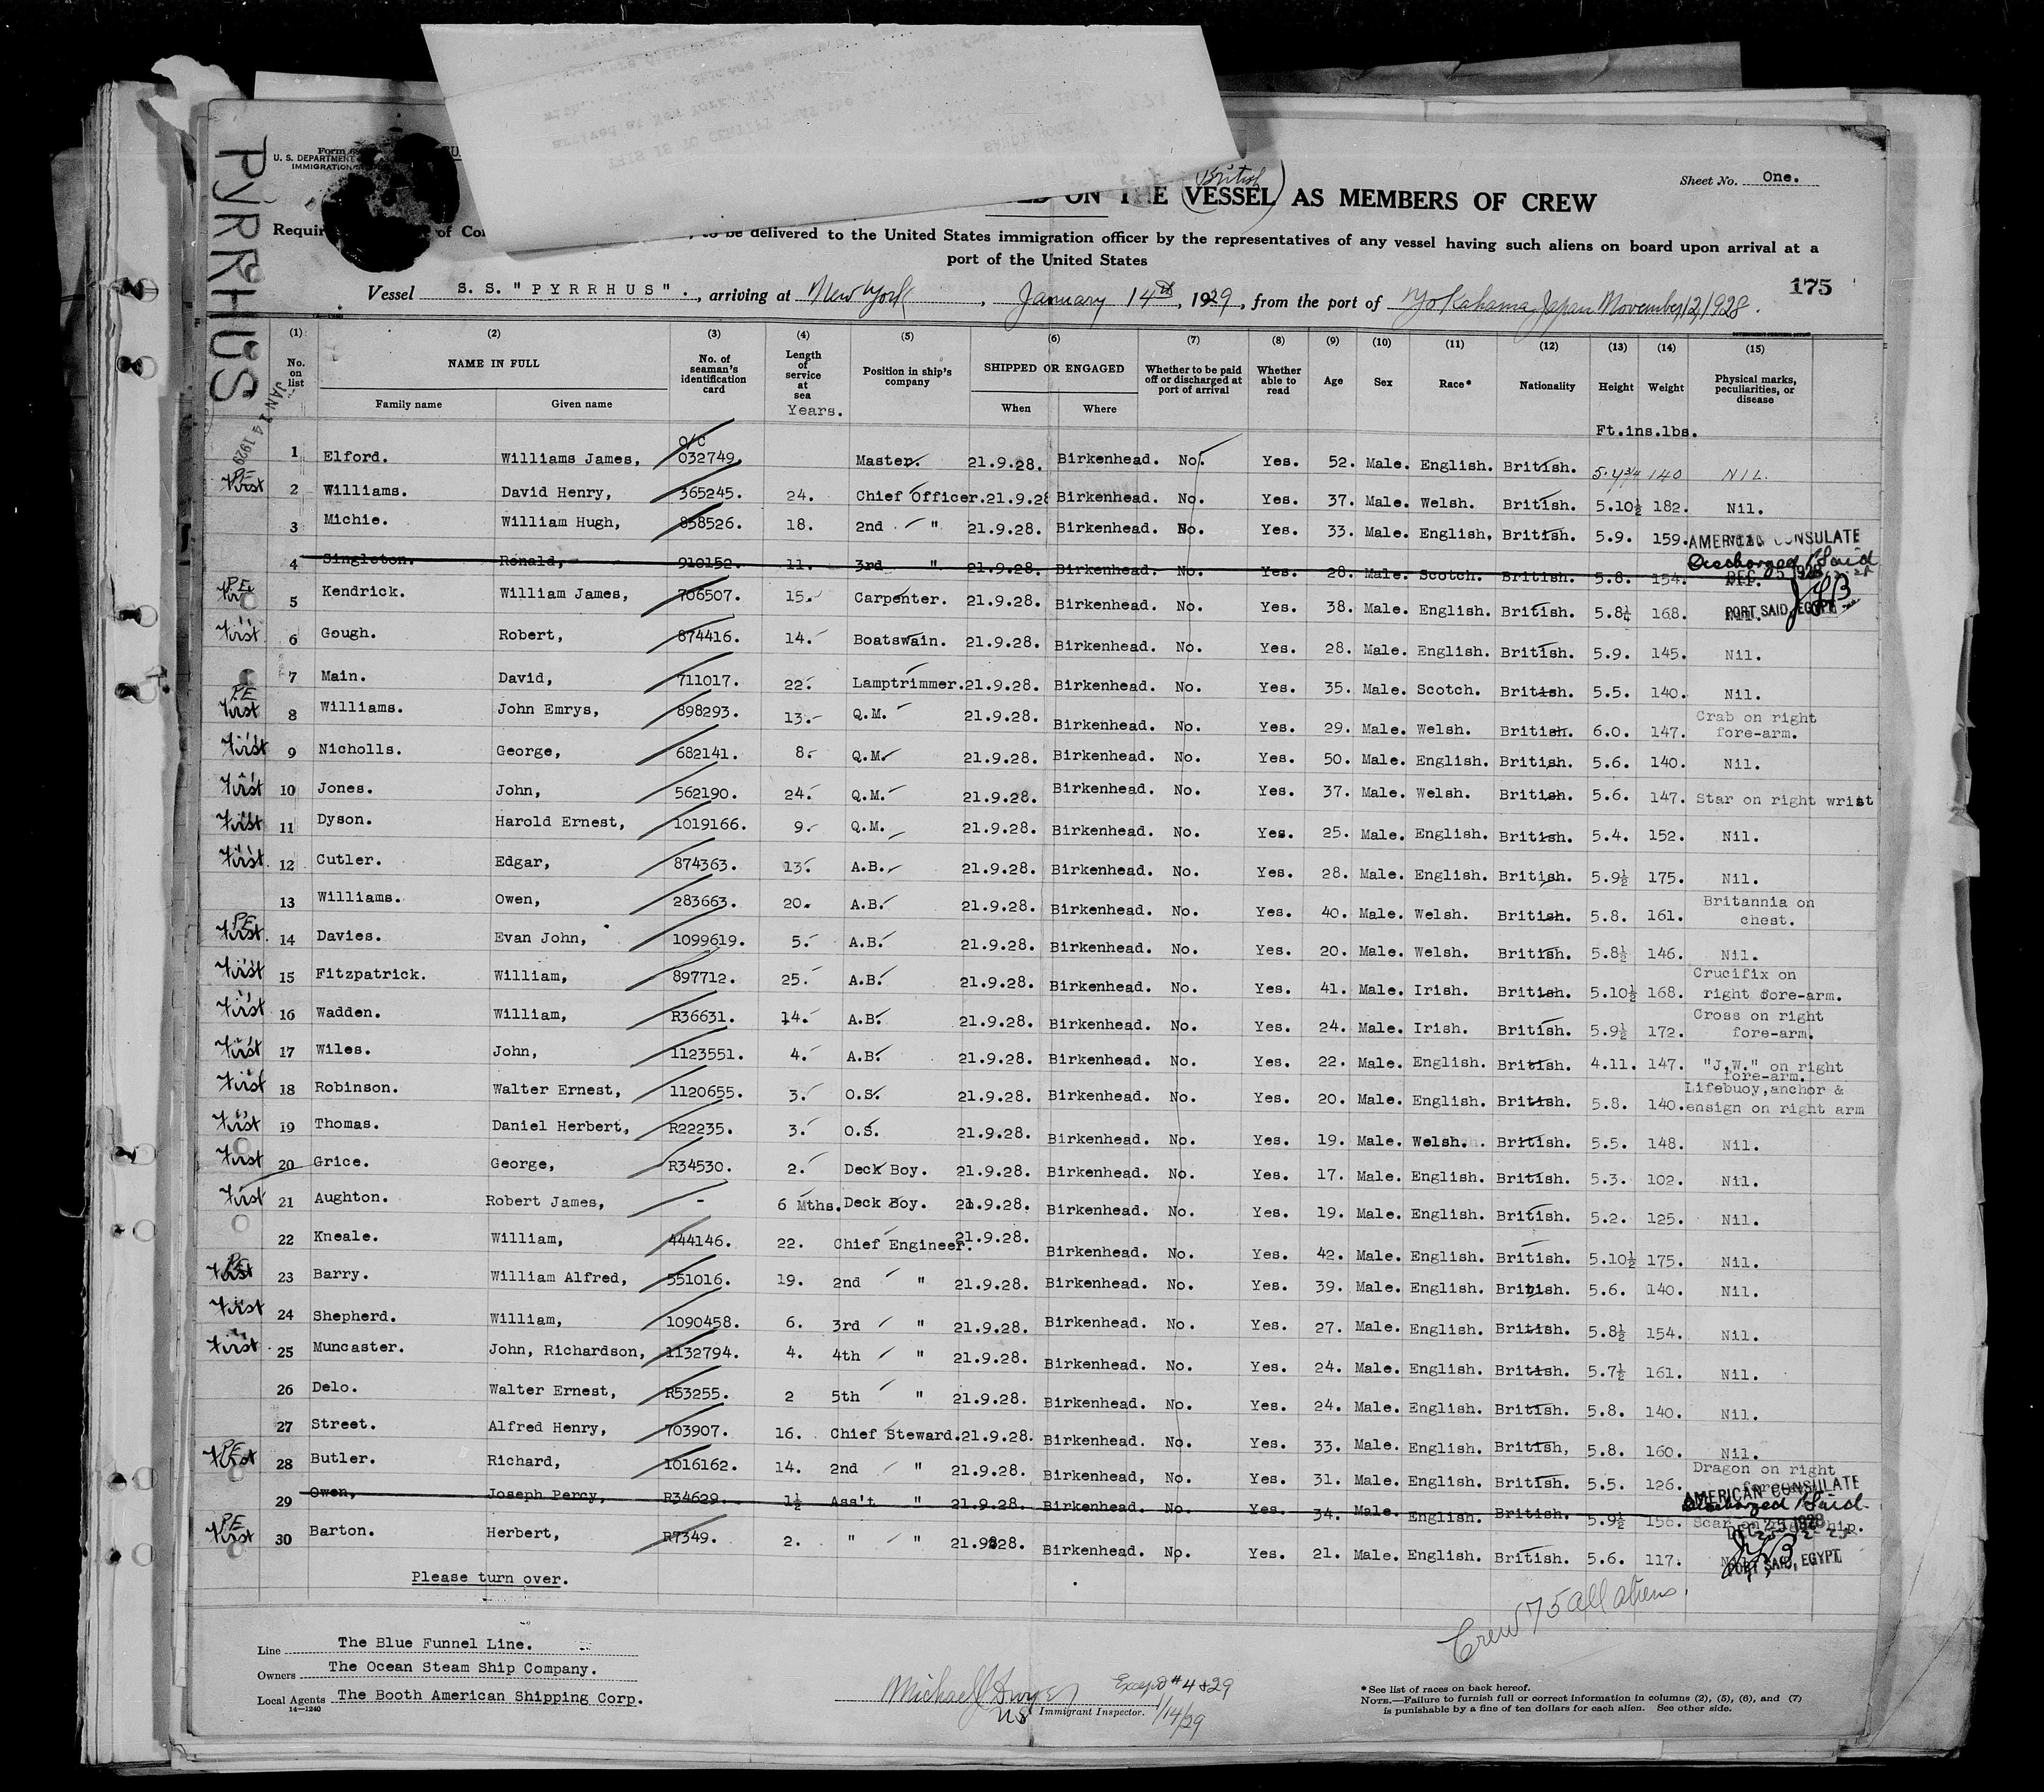 PYRRHUS
JAN 14 1929
U. S. DEPARTMENT
IMMIGRATION
Sheet No. One.
ON THE VESSEL AS MEMBERS OF CREW
British
to be delivered to the United States immigration officer by the representatives of any vessel having such aliens on board upon arrival at a
port of the United States
175
Vessel S. S. "PYRRHUS"., arriving at New York, January 14th, 1929, from the port of Yokahama Japan November 12, 1928.
(1) (2) (3) (4) (5) (6) (7) (8) (9) (10) (11) (12) (13) (14) (15)
No. on list NAME IN FULL Family name Given name No. of seaman's identification card Length of service at sea Years. Position in ship's company SHIPPED OR ENGAGED When Where Whether to be paid off or discharged at port of arrival Whether able to read Age Sex Race* Nationality Height Weight Physical marks, peculiarities, or disease
Ft.ins.lbs.
1 Elford. Williams James, o/c 032749. Master. 21.9.28. Birkenhead. No. Yes. 52. Male. English. British. 5.4¾ 140 NIL.
PE First 2 Williams. David Henry, 365245. 24. Chief Officer. 21.9.28 Birkenhead. No. Yes. 37. Male. Welsh. British. 5.10½ 182. Nil.
3 Michie. William Hugh, 858526. 18. 2nd " 21.9.28. Birkenhead. No. Yes. 33. Male. English, British. 5.9. 159.
4 Singleton. Ronald, 910152. 11. 3rd " 21.9.28. Birkenhead. No. Yes. 28. Male. Scotch. British. 5.8. 154.
AMERICAN CONSULATE
Discharged P Said
DEC 25 1928
PORT SAID, EGYPT
P.E. 5 Kendrick. William James, 706507. 15. Carpenter. 21.9.28. Birkenhead. No. Yes. 38. Male. English. British. 5.8¼ 168.
First 6 Gough. Robert, 874416. 14. Boatswain. 21.9.28. Birkenhead. No. Yes. 28. Male. English. British. 5.9. 145. Nil.
7 Main. David, 711017. 22. Lamptrimmer. 21.9.28. Birkenhead. No. Yes. 35. Male. Scotch. British. 5.5. 140. Nil.
P.E First 8 Williams. John Emrys, 898293. 13. Q.M. 21.9.28. Birkenhead. No. Yes. 29. Male. Welsh. British. 6.0. 147. Crab on right fore-arm.
First 9 Nicholls. George, 682141. 8. Q.M. 21.9.28. Birkenhead. No. Yes. 50. Male. English. British. 5.6. 140. Nil.
First 10 Jones. John, 562190. 24. Q.M. 21.9.28. Birkenhead. No. Yes. 37. Male. Welsh. British. 5.6. 147. Star on right wrist
First 11 Dyson. Harold Ernest, 1019166. 9. Q.M. 21.9.28. Birkenhead. No. Yes. 25. Male. English. British. 5.4. 152. Nil.
First. 12 Cutler. Edgar, 874363. 13. A.B. 21.9.28. Birkenhead. No. Yes. 28. Male. English. British. 5.9½ 175. Nil.
13 Williams. Owen, 283663. 20. A.B. 21.9.28. Birkenhead. No. Yes. 40. Male. Welsh. British. 5.8. 161. Britannia on chest.
P.E First. 14 Davies. Evan John, 1099619. 5. A.B. 21.9.28. Birkenhead. No. Yes. 20. Male. Welsh. British. 5.8½ 146. Nil.
First 15 Fitzpatrick. William, 897712. 25. A.B. 21.9.28. Birkenhead. No. Yes. 41. Male. Irish. British. 5.10½ 168. Crucifix on right fore-arm.
First 16 Wadden. William, R36631. 14. A.B. 21.9.28. Birkenhead. No. Yes. 24. Male. Irish. British. 5.9½ 172. Cross on right fore-arm.
First 17 Wiles. John, 1123551. 4. A.B. 21.9.28. Birkenhead. No. Yes. 22. Male. English. British. 4.11. 147. "J.W." on right fore-arm.
First 18 Robinson. Walter Ernest, 1120655. 3. O.S. 21.9.28. Birkenhead. No. Yes. 20. Male. English. British. 5.8. 140. Lifebuoy, anchor & ensign on right arm
First 19 Thomas. Daniel Herbert, R22235. 3. O.S. 21.9.28. Birkenhead. No. Yes. 19. Male. Welsh. British. 5.5. 148. Nil.
First 20 Grice. George, R34530. 2. Deck Boy. 21.9.28. Birkenhead. No. Yes. 17. Male. English. British. 5.3. 102. Nil.
First 21 Aughton. Robert James, - 6 Mths. Deck Boy. 21.9.28. Birkenhead. No. Yes. 19. Male. English. British. 5.2. 125. Nil.
22 Kneale. William, 444146. 22. Chief Engineer. 21.9.28. Birkenhead. No. Yes. 42. Male. English. British. 5.10½ 175. Nil.
PE First 23 Barry. William Alfred, 551016. 19. 2nd " 21.9.28. Birkenhead. No. Yes. 39. Male. English. British. 5.6. 140. Nil.
First 24 Shepherd. William, 1090458. 6. 3rd " 21.9.28. Birkenhead. No. Yes. 27. Male. English. British. 5.8½ 154. Nil.
First 25 Muncaster. John, Richardson, 1132794. 4. 4th " 21.9.28. Birkenhead. No. Yes. 24. Male. English. British. 5.7½ 161. Nil.
26 Delo. Walter Ernest, R53255. 2 5th " 21.9.28. Birkenhead. No. Yes. 24. Male. English. British. 5.8. 140. Nil.
27 Street. Alfred Henry, 703907. 16. Chief Steward. 21.9.28. Birkenhead. No. Yes. 33. Male. English. British, 5.8. 160. Nil.
PE First 28 Butler. Richard, 1016162. 14. 2nd " 21.9.28. Birkenhead, No. Yes. 31. Male. English. British. 5.5. 126. Dragon on right
29 Owen, Joseph Percy, R34629. 1½ Ass't " 21.9.28. Birkenhead. No. Yes. 34. Male. English. British. 5.9½ 156. Scar on hip.
AMERICAN CONSULATE
Discharged P Said
DEC 25 1928
PORT SAID, EGYPT
P.E First 30 Barton. Herbert, R7349. 2. " " 21.9.28. Birkenhead. No. Yes. 21. Male. English. British. 5.6. 117.
Please turn over.
Crew 75 all aliens.
Line The Blue Funnel Line.
Owners The Ocean Steam Ship Company.
Local Agents The Booth American Shipping Corp.
14—1240
Michael J Dwyer Except #4 & 29
US Immigrant Inspector. 1/14/29
*See list of races on back hereof.
NOTE.—Failure to furnish full or correct information in columns (2), (5), (6), and (7)
is punishable by a fine of ten dollars for each alien. See other side.